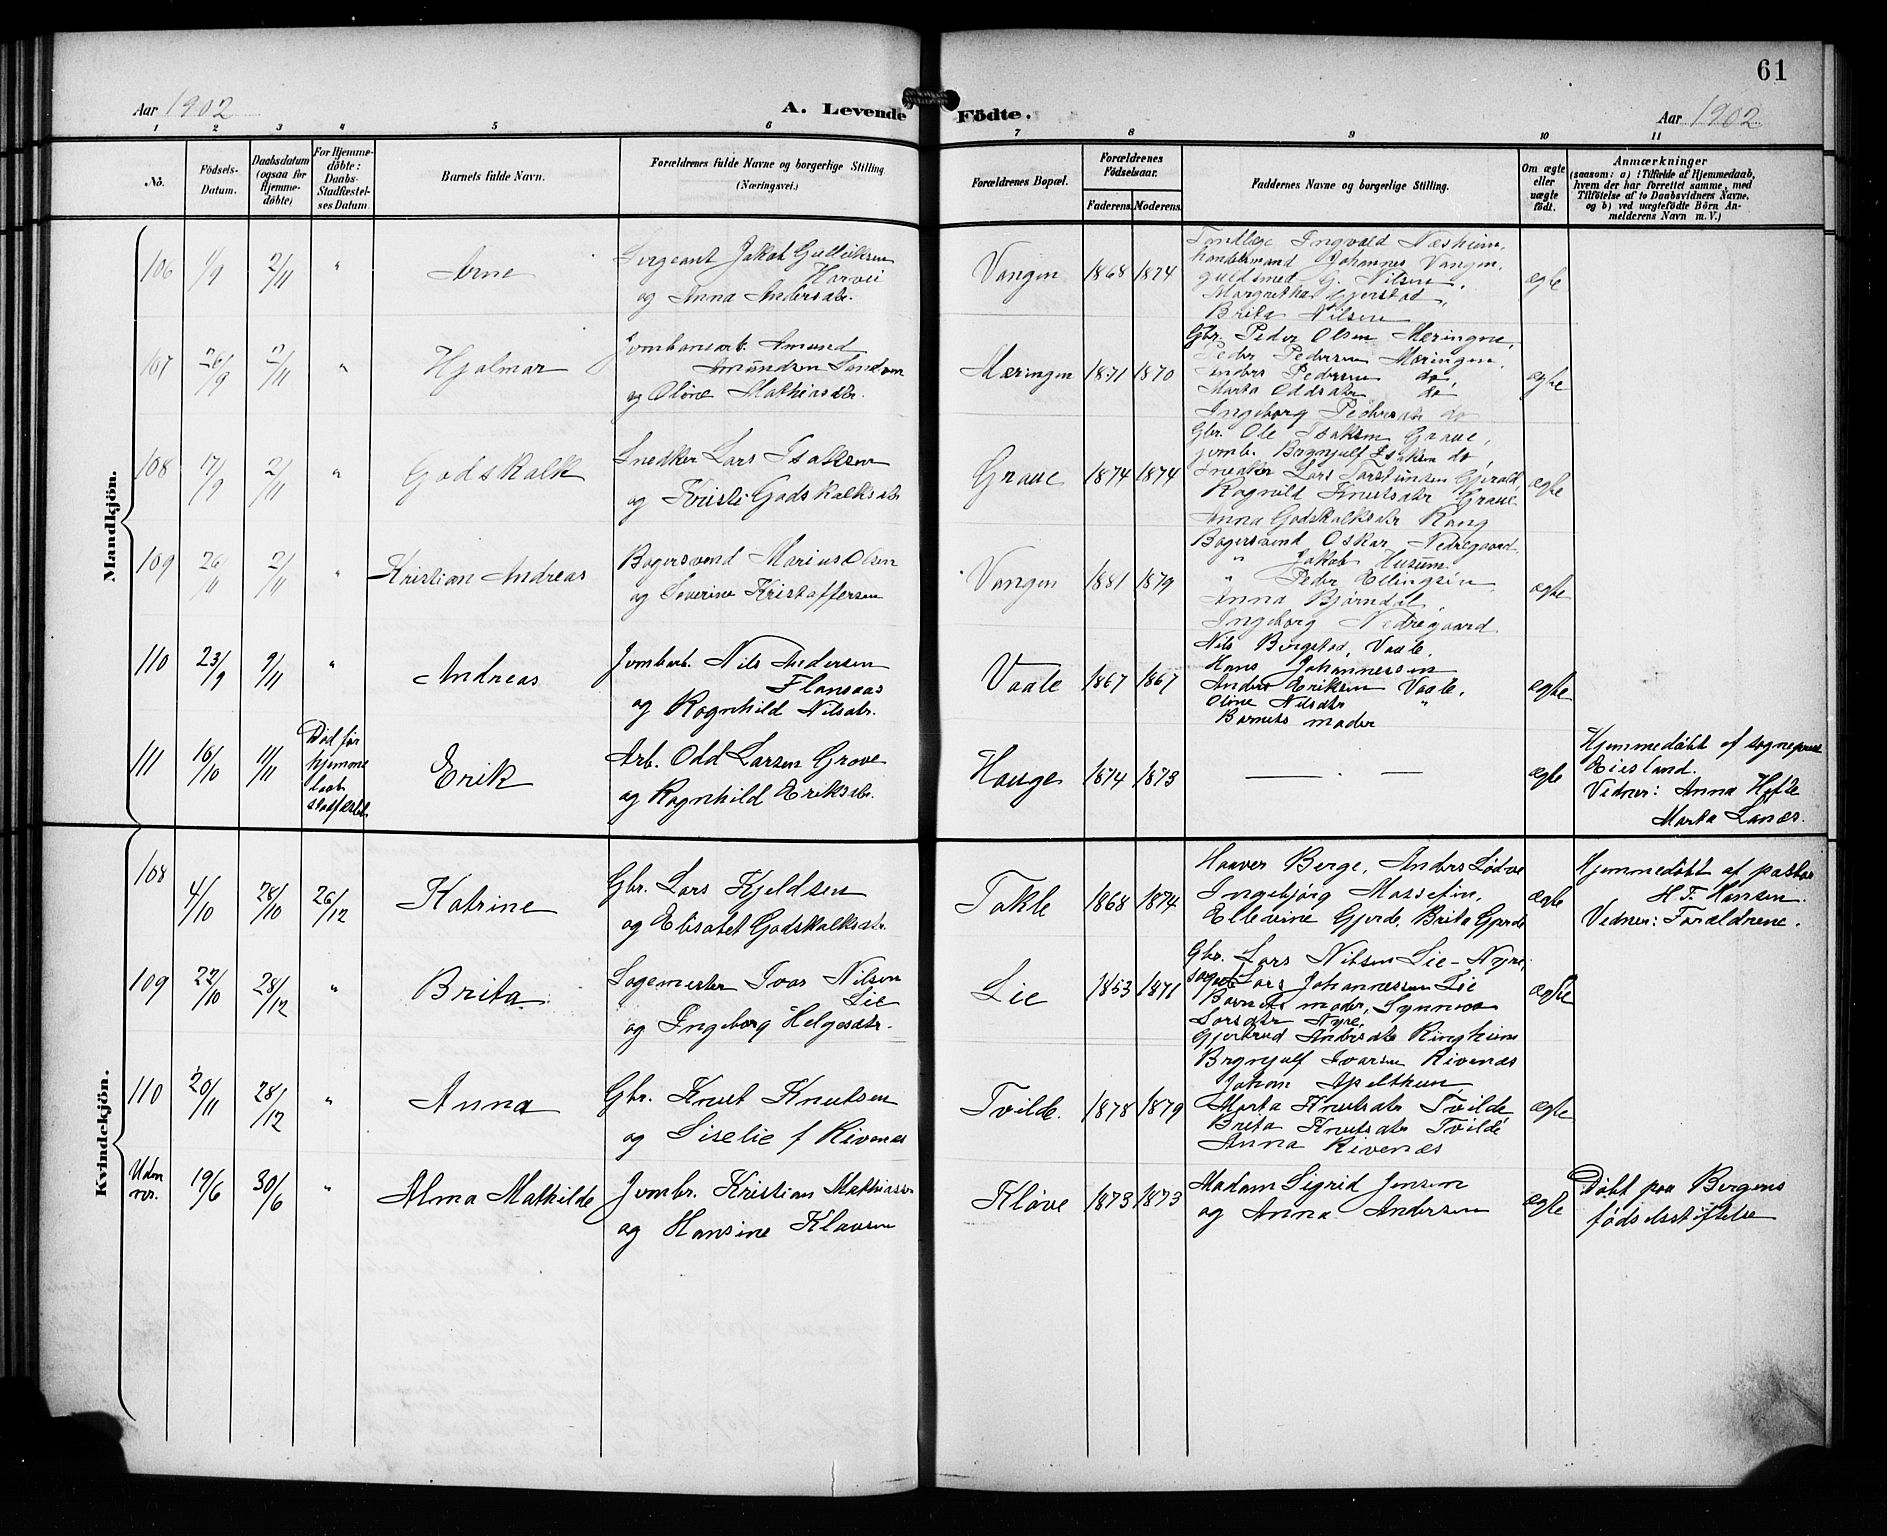 61
Aar 1902
A. Levende Födte.
Aar 1902
1 2 3 4 5 6 7 8 9 10 11
No.
Födsels-
Datum.
Daabsdatum
(ogsaa for
Hjemme-
döbte)
For Hjemme-
döbte:
Daabs-
Stadfæstel-
ses Datum
Barnets fulde Navn.
Forældrenes fulde Navne og borgerlige Stilling
(Næringsvei.)
Forældrenes Bopæl.
Forældrenes
Födselsaar.
Faderens. Moderens.
Faddernes Navne og borgerlige Stilling.
Om ægte
eller
uægte
födt.
Anmærkninger
(saasom: a) i Tilfælde af Hjemmedaab,
hvem der har forrettet samme, med
Tilföielse af to Daabsvidners Navne.
og b) ved uægtefödte Börn An-
melderens Navn m. V.)
Mandkjön.
106 2/11 " Arne
Sergeant Jakob Gulleiksen
og Anna Andersdtr.
Vangen 1868 1874
Ingvald Næsheim,
Handelsmand Johannes Vangen,
guldsmed G. Nilsen,
Brita Nilsen
ægte
107 26/9 2/11 " Hjalmar
Jernbanearb. Amund
Amundsen
og Oline Mathiasdtr.
Mæringen 1871 1870
Gbr. Peder Olsen Mæringen,
Peder Pedersen Mæringen,
Anders Pedersen do,
Marta Oddsdtr do
Ingeborg Pedersdtr do
ægte
108 17/9 2/11 " Godskalk
Snedker Lars Isaksen
og Kristi Godskalksdtr
Graue 1874 1874
Gbr. Ole Isaksen Graue,
jernb. Brynjulf Isaksen do,
Snedker Lars Torsteinsen Gjerald
Ragnild Knutsdtr Graue
Anna Godskalksdtr Rang
ægte
109 2/11 " Kristian Andreas
Bagersvend Marius Olsen
og Severine Kristoffersen
Vangen 1881 1879
Bagersvend Oskar Nedregaard
" Jakob Husum
" Peder Ellingsen
Anna Bjørndal,
Ingeborg Nedregaard
ægte
110 23/9 9/11 " Andreas
Jernbarb. Nils Andersen
Flansaas
og Ragnhild Nilsdtr.
Vaale 1867 1867
Nils Bergstad, Vaale,
Hans Johannessen
Anders Eriksen Vaale,
Oline Nilsdtr "
Barnets moder
ægte
111 16/10 11/11 Død før
hjemme
daab
stadfæstet
Erik
Arb. Odd Larsen Grove
og Ragnhild Eriksdtr.
Hauge 1874 1873
ægte
Hjemmedøbt af sogneprest
Eiesland.
Vidner: Anna Hefte
Marta Lanæs.
Kvindekjön.
108 4/10 28/10 26/12 Katrine
Gbr. Lars Kjeldsen
og Elisabet Godskalksdtr.
Takle 1868 1874
Haaver Berge, Anders Lødve
Ingebjørg Mossefin,
Ellevine Gjerde, Brita Gjerde
ægte
Hjemmedøbt af pastor
H. F. Hansen.
Vidner: Forældrene.
109 22/10 28/12 " Brita
Sagemester Ivar Nilsen
Lie
og Ingeborg Helgesdtr.
Lie 1853 1871
Gbr. Lars Nilsen Lie-Nyre,
Lars Johannessen Lie
Barnets moder, Synnøva
Larsdtr Nyre,
Gjertrud Andersdtr Ringheim
ægte
110 20/11 28/12 " Anna
Gbr. Knut Knutsen
og Liselie f Rivenæs
Tvilde. 1878 1879
Brynjulf Ivarsen Rivenæs
Johan Apelthun
Marta Knutsdtr Tvilde
Brita Knutsdtr Tvilde
Anna Rivenæs
ægte
Uden
nr. 19/6 30/6 " Alma Mathilde
Jernbr. Kristian Mathiassen
og Hansine Klausen
Kløve 1873 1873
Madam Sigrid Jensen
og Anna Andersen
ægte
Døbt paa Bergens
fødselsstiftelse